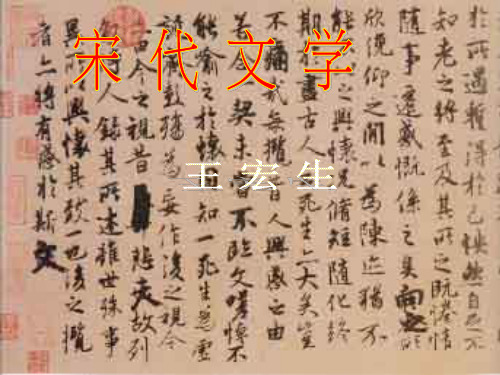 宋代文学
王宏生
於所遇輙得於己怏然自足不
知老之將至及其所之既惓情
隨事遷感慨係之矣向之所
欣俛仰之閒以爲陳迹猶不
能之興懷況脩短隨化終
期於盡古人死生亦大矣豈
不痛哉每攬昔人興感之由
若合一契未嘗不臨文嗟悼不
能喻之於懷固知一死生爲虛
誕齊彭殤爲妄作後之視今
由今之視昔悲夫故列
人錄其所述雖世殊事
異所以興懷其致一也後之攬
者亦將有感於斯文